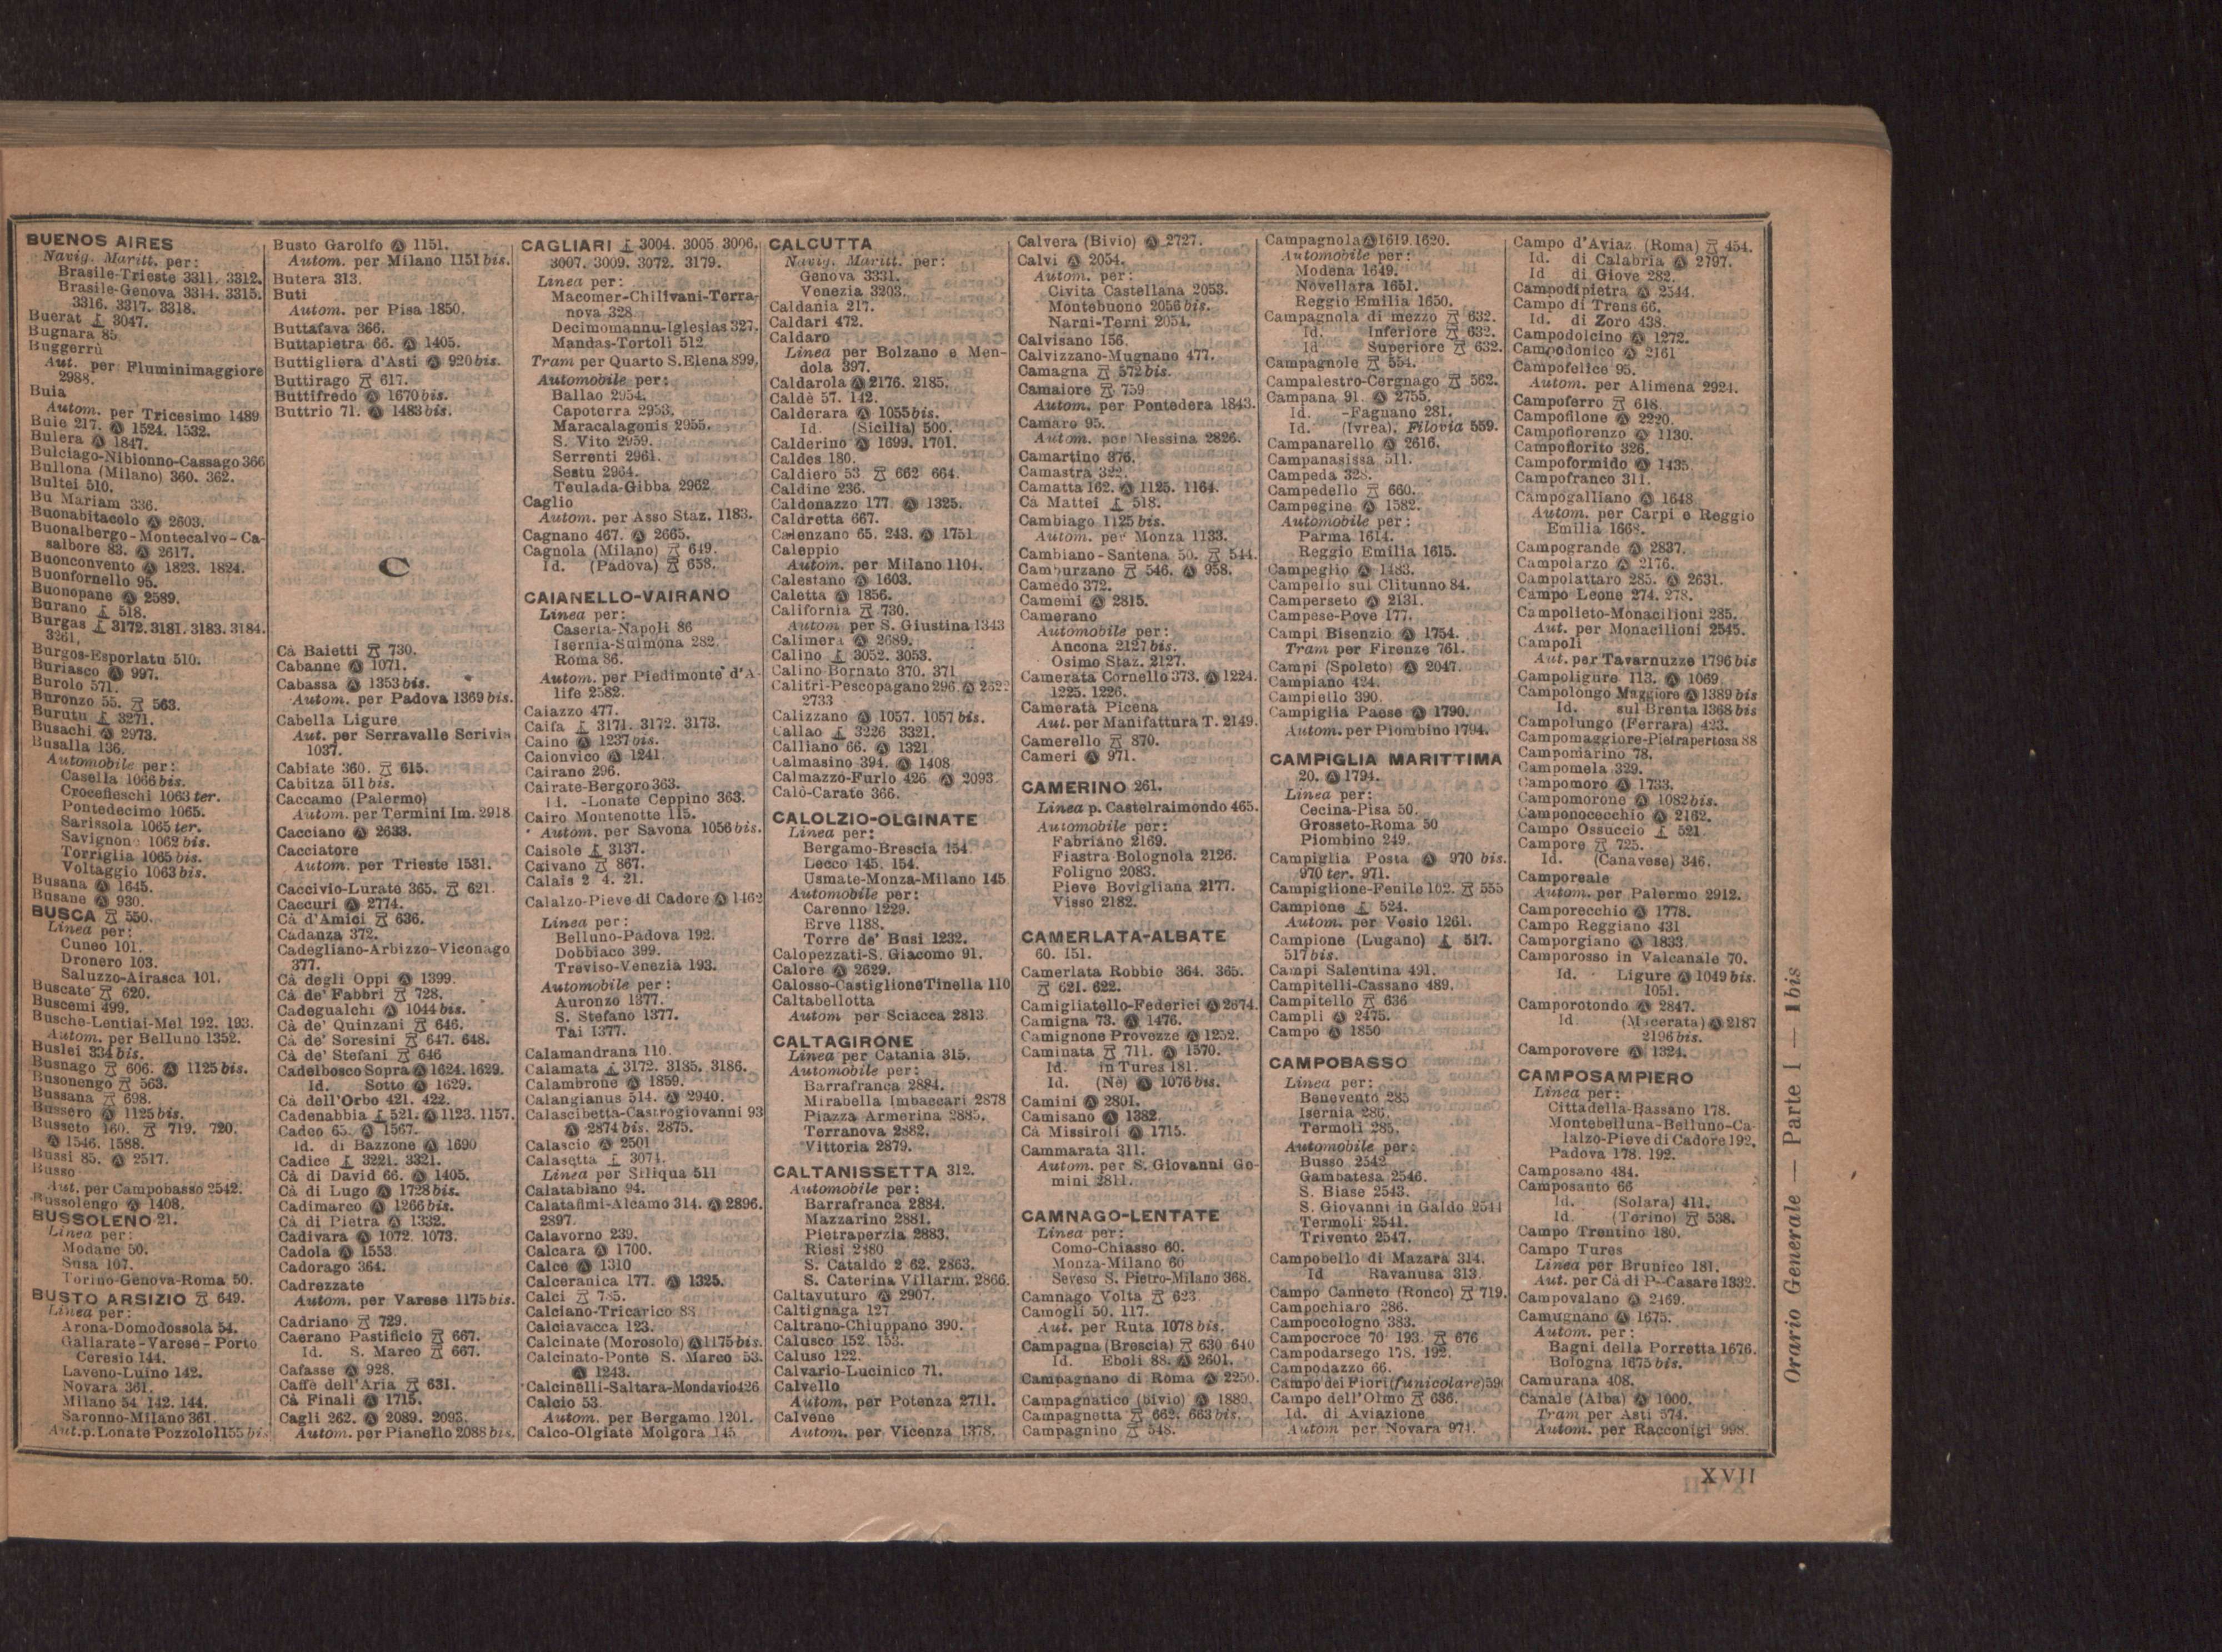 BUENOS AIRES
Navig. Maritt. per:
Brasile-Trieste 3311. 3312.
Brasile-Genova 3314. 3315.
3316. 3317. 3318.
Buerat 3047.
Bugnara 85.
Buggerrù
Aut. per Fluminimaggiore
2988.
Buia
Autom. per Tricesimo 1489
Buie 217. Ⓐ 1524. 1532.
Bulera Ⓐ 1847.
Bulciago-Nibionno-Cassago 366
Bullona (Milano) 360. 362.
Bultei 510.
Bu Mariam 336.
Buonabitacolo Ⓐ 2603.
Buonalbergo-Montecalvo-Ca-
salbore 83. Ⓐ 2617.
Buonconvento Ⓐ 1823. 1824.
Buonfornello 95.
Buonopane Ⓐ 2589.
Burano 518.
Burgas 3172. 3181. 3183. 3184.
3261.
Burgos-Esporlatu 510.
Buriasco Ⓐ 997.
Burolo 571.
Buronzo 55. 563.
Burutu 3271.
Busachi Ⓐ 2973.
Busalla 136.
Automobile per:
Casella 1066 bis.
Crocefieschi 1063 ter.
Pontedecimo 1065.
Sarissola 1065 ter.
Savignon 1062 bis.
Torriglia 1065 bis.
Voltaggio 1063 bis.
Busana Ⓐ 1645.
Busane Ⓐ 930.
BUSCA 550.
Linea per:
Cuneo 101.
Dronero 103.
Saluzzo-Airasca 101.
Buscate 620.
Buscemi 499.
Busche-Lentiai-Mel 192. 193.
Autom. per Belluno 1352.
Buslei 334 bis.
Busnago 606. Ⓐ 1125 bis.
Busonengo 563.
Bussana 698.
Bussero Ⓐ 1125 bis.
Busseto 160. 719. 720.
Ⓐ 1546. 1588.
Bussi 85. Ⓐ 2517.
Busso
Aut. per Campobasso 2542.
Bussolengo Ⓐ 1408.
BUSSOLENO 21.
Linea per:
Modane 50.
Susa 107.
Torino-Genova-Roma 50.
BUSTO ARSIZIO 649.
Linea per:
Arona-Domodossola 54.
Gallarate-Varese-Porto
Ceresio 144.
Laveno-Luino 142.
Novara 361.
Milano 54. 142. 144.
Saronno-Milano 361.
Aut. p. Lonate Pozzolo 1155 bis
Busto Garolfo Ⓐ 1151.
Autom. per Milano 1151 bis.
Butera 313.
Buti
Autom. per Pisa 1850.
Buttafava 366.
Buttapietra 66. Ⓐ 1405.
Buttigliera d'Asti Ⓐ 920 bis.
Buttirago 617.
Buttifredo Ⓐ 1670 bis.
Buttrio 71. Ⓐ 1483 bis.
C
Cà Baietti 730.
Cabanne Ⓐ 1071.
Cabassa Ⓐ 1353 bis.
Autom. per Padova 1369 bis.
Cabella Ligure
Aut. per Serravalle Scrivia
1037.
Cabiate 360. 615.
Cabitza 511 bis.
Caccamo (Palermo)
Autom. per Termini Im. 2918
Cacciano Ⓐ 2633.
Cacciatore
Autom. per Trieste 1531.
Caccivio-Lurate 365. 621.
Caccuri Ⓐ 2774.
Cà d'Amici 636.
Cadanza 372.
Cadegliano-Arbizzo-Viconago
377.
Cà degli Oppi Ⓐ 1399.
Cà de' Fabbri 728.
Cadegualchi Ⓐ 1044 bis.
Cà de' Quinzani 646.
Cà de' Soresini 647. 648.
Cà de' Stefani 646
Cadelbosco Sopra Ⓐ 1624. 1629.
Id. Sotto Ⓐ 1629.
Cà dell'Orbo 421. 422.
Cadenabbia 521. Ⓐ 1123. 1157.
Cadeo 65. Ⓐ 1567.
Id. di Bazzone Ⓐ 1690
Cadice 3221. 3321.
Cà di David 66. Ⓐ 1405.
Cà di Lugo Ⓐ 1728 bis.
Cadimarco Ⓐ 1266 bis.
Cà di Pietra Ⓐ 1332.
Cadivara Ⓐ 1072. 1073.
Cadola Ⓐ 1553
Cadorago 364.
Cadrezzate
Autom. per Varese 1175 bis.
Cadriano 729.
Caerano Pastificio 667.
Id. S. Marco 667.
Cafasse Ⓐ 928.
Caffè dell'Aria 631.
Cà Finali Ⓐ 1715.
Cagli 262. Ⓐ 2089. 2093.
Autom. per Pianello 2088 bis.
CAGLIARI 3004. 3005 3006.
3007. 3009. 3072. 3179.
Linea per:
Macomer-Chilivani-Terra-
nova 328
Decimomannu-Iglesias 327.
Mandas-Tortolì 512
Tram per Quarto S. Elena 899.
Automobile per:
Ballao 2954.
Capoterra 2953.
Maracalagonis 2955.
S. Vito 2959.
Serrenti 2961.
Sestu 2964.
Teulada-Gibba 2962
Caglio
Autom. per Asso Staz. 1183.
Cagnano 467. Ⓐ 2665.
Cagnola (Milano) 649.
Id. (Padova) 658.
CAIANELLO-VAIRANO
Linea per:
Caserta-Napoli 86
Isernia-Sulmona 282.
Roma 86.
Autom. per Piedimonte d'A-
life 2582.
Caiazzo 477.
Caifa 3171. 3172. 3173.
Caino Ⓐ 1237 bis.
Caionvico Ⓐ 1241.
Cairano 296.
Cairate-Bergoro 363.
Id. -Lonate Ceppino 363.
Cairo Montenotte 115.
Autom. per Savona 1056 bis.
Caisole 3137.
Caivano 867.
Calais 2 4. 21.
Calalzo-Pieve di Cadore Ⓐ 1462
Linea per:
Belluno-Padova 192.
Dobbiaco 399.
Treviso-Venezia 193.
Automobile per:
Auronzo 1377.
S. Stefano 1377.
Tai 1377.
Calamandrana 110.
Calamata 3172. 3185. 3186.
Calambrone Ⓐ 1859.
Calangianus 514. Ⓐ 2940.
Calascibetta-Castrogiovanni 93
Ⓐ 2874 bis. 2875.
Calascio Ⓐ 2501
Calasetta 3074.
Linea per Siliqua 511
Calatabiano 94.
Calatafimi-Alcamo 314. Ⓐ 2896.
2897.
Calavorno 239.
Calcara Ⓐ 1700.
Calce Ⓐ 1310
Calceranica 177. Ⓐ 1325.
Calci 735.
Calciano-Tricarico 88
Calciavacca 123.
Calcinate (Morosolo) Ⓐ 1175 bis.
Calcinato-Ponte S. Marco 53.
Ⓐ 1243.
Calcinelli-Saltara-Mondavio 426
Calcio 53.
Autom. per Bergamo 1201.
Calco-Olgiate Molgora 145
CALCUTTA
Navig. Maritt. per:
Genova 3331.
Venezia 3203.
Caldania 217.
Caldari 472.
Caldaro
Linea per Bolzano e Men-
dola 397.
Caldarola Ⓐ 2176. 2185.
Caldè 57. 142.
Calderara Ⓐ 1055 bis.
Id. (Sicilia) 500.
Calderino Ⓐ 1699. 1701.
Caldes 180.
Caldiero 53 662 664.
Caldine 236.
Caldonazzo 177. Ⓐ 1325.
Caldretta 667.
Calenzano 65. 243. Ⓐ 1751
Caleppio
Autom. per Milano 1104.
Calestano Ⓐ 1603.
Caletta Ⓐ 1856.
California 730.
Autom. per S. Giustina 1343
Calimera Ⓐ 2689.
Calino 3052. 3053.
Calino Bornato 370. 371
Calitri-Pescopagano 296. Ⓐ
2733
Calizzano Ⓐ 1057. 1057 bis.
Callao 3226 3321.
Calliano 66. Ⓐ 1321
Calmasino 394. Ⓐ 1408
Calmazzo-Furlo 426 Ⓐ 2093
Calò-Carate 366.
CALOLZIO-OLGINATE
Linea per:
Bergamo-Brescia 154.
Lecco 145. 154.
Usmate-Monza-Milano 145
Automobile per:
Carenno 1229.
Erve 1188.
Torre de' Busi 1232.
Calopezzati-S. Giacomo 91.
Calore Ⓐ 2629.
Calosso-Castiglione Tinella 110
Caltabellotta
Autom per Sciacca 2813
CALTAGIRONE
Linea per Catania 315.
Automobile per:
Barrafranca 2884.
Mirabella Imbaccari 2878
Piazza Armerina 2885.
Terranova 2882.
Vittoria 2879.
CALTANISSETTA 312.
Automobile per:
Barrafranca 2884.
Mazzarino 2881.
Pietraperzia 2883.
Riesi 2880
S. Cataldo 2 62. 2863.
S. Caterina Villarm. 2866.
Caltavuturo Ⓐ 2907.
Caltignaga 127
Caltrano-Chiuppano 390.
Calusco 152. 153.
Caluso 122.
Calvario-Lucinico 71.
Calvello
Autom. per Potenza 2711.
Calvene
Autom. per Vicenza 1378.
Calvera (Bivio) Ⓐ 2727.
Calvi Ⓐ 2054.
Autom. per:
Civita Castellana 2053.
Montebuono 2056 bis.
Narni-Terni 2054.
Calvisano 156.
Calvizzano-Mugnano 477.
Camagna 572 bis.
Camaiore 759
Autom. per Pontedera 1843.
Camaro 95.
Autom. per Messina 2826.
Camartino 376.
Camastra 322.
Camatta 162. Ⓐ 1125. 1164.
Cà Mattei 518.
Cambiago 1125 bis.
Autom. per Monza 1133.
Cambiano-Santena 50. 544.
Camburzano 546. Ⓐ 958.
Camedo 372.
Camemi Ⓐ 2815.
Camerano
Automobile per:
Ancona 2127 bis.
Osimo Staz. 2127.
Camerata Cornello 373. Ⓐ 1224.
1225. 1226.
Camerata Picena
Aut. per Manifattura T. 2149.
Camerello 870.
Cameri Ⓐ 971.
CAMERINO 261.
Linea p. Castelraimondo 465.
Automobile per:
Fabriano 2169.
Fiastra Bolognola 2126.
Foligno 2083.
Pieve Bovigliana 2177.
Visso 2182.
CAMERLATA-ALBATE
60. 151.
Camerlata Robbio 364. 365.
621. 622.
Camigliatello-Federici Ⓐ 2674.
Camigna 73. Ⓐ 1476.
Camignone Provezze Ⓐ 1252.
Caminata 711. Ⓐ 1570.
Id. in Tures 181.
Id. (Nè) Ⓐ 1076 bis.
Camini Ⓐ 2801.
Camisano Ⓐ 1382.
Cà Missiroli Ⓐ 1715.
Cammarata 311.
Autom. per S. Giovanni Ge-
mini 2811.
CAMNAGO-LENTATE
Linea per:
Como-Chiasso 60.
Monza-Milano 60
Seveso S. Pietro-Milano 368.
Camnago Volta 623
Camogli 50. 117.
Aut. per Ruta 1078 bis.
Campagna (Brescia) 630 640
Id. Eboli 88. Ⓐ 2601.
Campagnano di Roma Ⓐ 2250.
Campagnatico (bivio) Ⓐ 1889.
Campagnetta 662. 663 bis.
Campagnino 548.
Campagnola Ⓐ 1619. 1620.
Automobile per:
Modena 1649.
Novellara 1651.
Reggio Emilia 1650.
Campagnola di mezzo 632.
Id. Inferiore 632.
Id Superiore 632.
Campagnole 554.
Campalestro-Cergnago 562.
Campana 91. Ⓐ 2755.
Id. -Fagnano 281.
Id. (Ivrea). Filovia 559.
Campanarello Ⓐ 2616.
Campanasissa 511.
Campeda 328.
Campedello 660.
Campegine Ⓐ 1582.
Automobile per:
Parma 1614.
Reggio Emilia 1615.
Campeglio Ⓐ 1483.
Campello sul Clitunno 84.
Camperseto Ⓐ 2131.
Campese-Pove 177.
Campi Bisenzio Ⓐ 1754.
Tram per Firenze 761.
Campi (Spoleto) Ⓐ 2047.
Campiano 424.
Campiello 390.
Campiglia Paese Ⓐ 1790.
Autom. per Piombino 1794.
CAMPIGLIA MARITTIMA
20. Ⓐ 1794.
Linea per:
Cecina-Pisa 50.
Grosseto-Roma 50
Piombino 249.
Campiglia Posta Ⓐ 970 bis.
970 ter. 971.
Campiglione-Fenile 102. 555
Campione 524.
Autom. per Vesio 1261.
Campione (Lugano) 517.
517 bis.
Campi Salentina 491.
Campitelli-Cassano 489.
Campitello 636
Campli Ⓐ 2475.
Campo Ⓐ 1850
CAMPOBASSO
Linea per:
Benevento 285
Isernia 286.
Termoli 285.
Automobile per:
Busso 2542
Gambatesa 2546.
S. Biase 2543.
S. Giovanni in Galdo 2544
Termoli 2541.
Trivento 2547.
Campobello di Mazara 314.
Id Ravanusa 313
Campo Canneto (Ronco) 719.
Campochiaro 286.
Campocologno 383.
Campocroce 70 193. 676
Campodarsego 178. 192.
Campodazzo 66.
Campo dei Fiori (funicolare) 590
Campo dell'Olmo 636.
Id. di Aviazione
Autom per Novara 971.
Campo d'Aviaz. (Roma) 454.
Id. di Calabria Ⓐ 2797.
Id di Giove 282.
Campodipietra Ⓐ 2544.
Campo di Trens 66.
Id. di Zoro 438.
Campodolcino Ⓐ 1272.
Campodonico Ⓐ 2161
Campofelice 95.
Autom. per Alimena 2924.
Campoferro 618
Campofilone Ⓐ 2220.
Campofiorenzo Ⓐ 1130.
Campofiorito 326.
Campoformido Ⓐ 1435
Campofranco 311.
Campogalliano Ⓐ 1648
Autom. per Carpi e Reggio
Emilia 1668.
Campogrande Ⓐ 2837.
Campolarzo Ⓐ 2176.
Campolattaro 285. Ⓐ 2631.
Campo Leone 274. 278.
Campolieto-Monacilioni 285.
Aut. per Monacilioni 2545.
Campoli
Aut. per Tavarnuzze 1796 bis
Campoligure 113. Ⓐ 1069
Campolongo Maggiore Ⓐ 1389 bis
Id. sul Brenta 1368 bis
Campolungo (Ferrara) 423.
Campomaggiore-Pietrapertosa 88
Campomarino 78.
Campomela 329.
Campomoro Ⓐ 1733.
Campomorone Ⓐ 1082 bis.
Camponocecchio Ⓐ 2162.
Campo Ossuccio 521
Campore 725.
Id. (Canavese) 346.
Camporeale
Autom. per Palermo 2912.
Camporecchio Ⓐ 1778.
Campo Reggiano 431
Camporgiano Ⓐ 1833
Camporosso in Valcanale 70.
Id. Ligure Ⓐ 1049 bis.
1051.
Camporotondo Ⓐ 2847.
Id (Macerata) Ⓐ 2187
2196 bis.
Camporovere Ⓐ 1324.
CAMPOSAMPIERO
Linea per:
Cittadella-Bassano 178.
Montebelluna-Belluno-Ca-
lalzo-Pieve di Cadore 192.
Padova 178. 192.
Camposano 484.
Camposanto 66
Id. (Solara) 411.
Id. (Torino) 538.
Campo Trentino 180.
Campo Tures
Linea per Brunico 181.
Aut. per Cà di P--Casare 1332.
Campovalano Ⓐ 2469.
Camugnano Ⓐ 1675.
Autom. per:
Bagni della Porretta 1676.
Bologna 1675 bis.
Camurana 408.
Canale (Alba) Ⓐ 1000.
Tram per Asti 574.
Autom. per Racconigi 998.
Orario Generale — Parte I — 11 bis
XVII